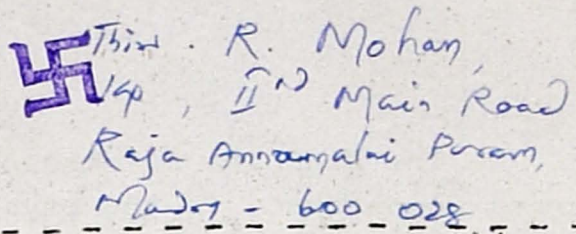 Thiru. R. Mohan,
IInd Main Road
Raja Annamalai Puram,
Madras - 600 028